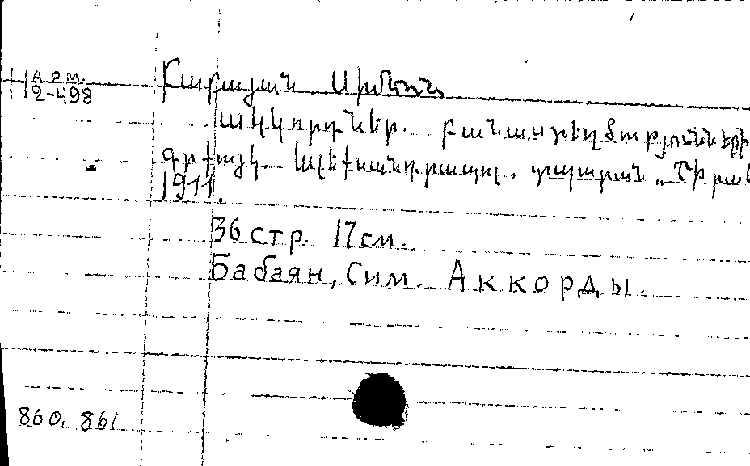 Арм.
2-498
Բաբայան Սիմեոն
Ակկորդներ. բանաստեղծությունների
գրքույկ. Ալեքսանդրապոլ, տպարան
1911.
36 стр. 17 см.
Бабаян, Сим. Аккорды.
860, 861